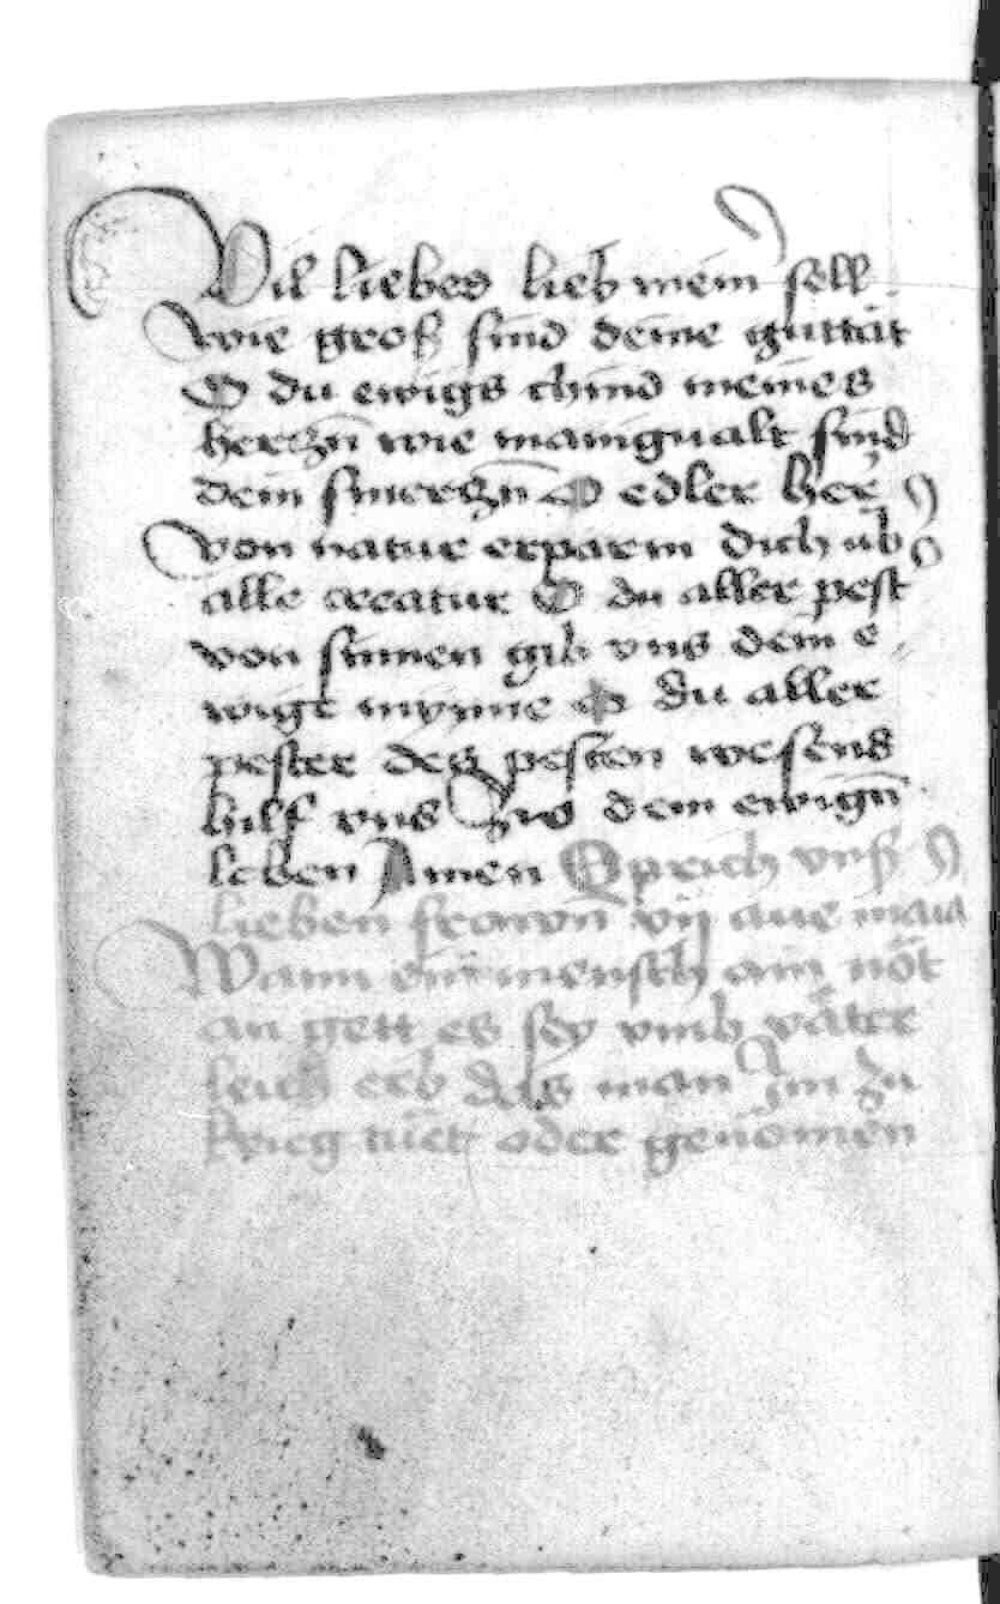 Vil liebes lieb mein sell
wie groß sind deine guttät
O du ewigs chind meines
herczn̄ wie manigualt sind
dein smerczn̄ O edler her̄
von natur erparm dich üb
alle creatur O du aller pest
von sinnen gib vns dein e
wige mynne O du aller
pester des pesten wesens
hilf vns zw dem ewign̄
leben Amen Sprich vnß
lieben frawn vij aue maria
Wann ein mensch ain nöt
an gett es sey vmb väter
leich erb das man Im zu
krieg tüet oder genomen